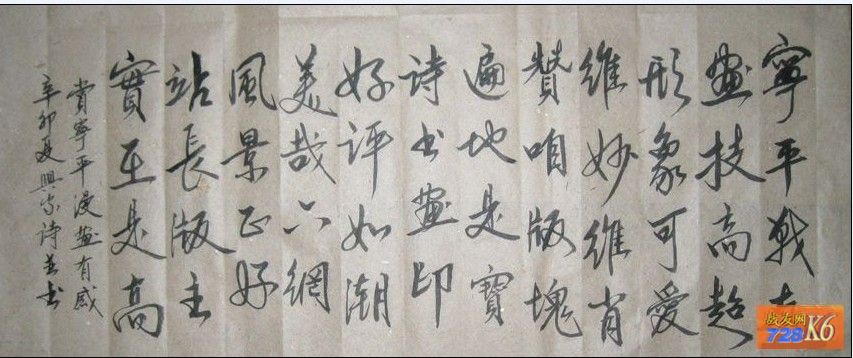 寧平戰友
畫技高超
形象可愛
維妙維肖
贊咱版塊
遍地是寶
詩书畫印
好评如潮
美哉六網
風景正好
站長版主
實至是高
賞寧平漫畫有感
辛卯夏興家诗并书
战友网
728 K6